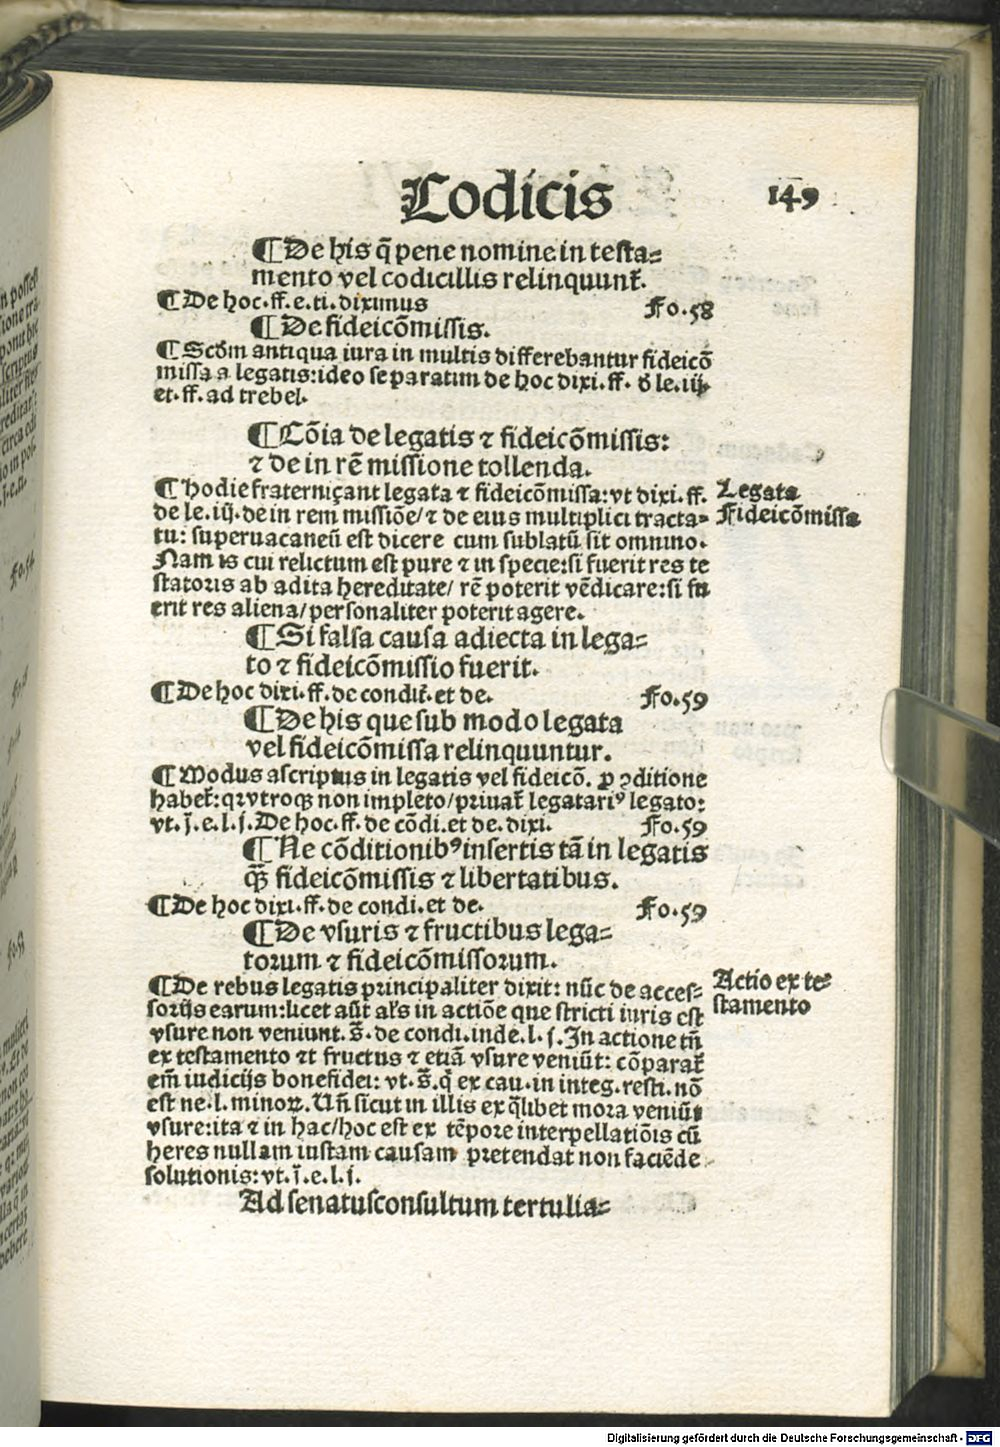 Codicis 149
¶ De his q̄ pene nomine in testa⸗
mento vel codicillis relinquunt̄.
¶ De hoc. ff. e. ti. diximus Fo. 58
¶ De fideicōmissis.
¶ Scd̄m antiqua iura in multis differebantur fideicō
missa a legatis: ideo separatim de hoc dixi. ff. d̄ le. iij.
et. ff. ad trebel.
¶ Cōia de legatis ⁊ fideicōmissis:
⁊ de in rē missione tollenda.
¶ Hodie fraterniçant legata ⁊ fideicōmissa: vt dixi. ff.
Legata
de le. iij. de in rem missiōe/ ⁊ de eius multiplici tracta⸗
Fideicōmissa
tu: superuacaneū est dicere cum sublatū sit omnino.
Nam is cui relictum est pure ⁊ in specie: si fuerit res te
statoris ab adita hereditate/ rē poterit vēdicare: si fu
erit res aliena/ personaliter poterit agere.
¶ Si falsa causa adiecta in lega⸗
to ⁊ fideicōmissio fuerit.
¶ De hoc dixi. ff. de condit̄. et de. Fo. 59
¶ De his que sub modo legata
vel fideicōmissa relinquuntur.
¶ Modus ascriptus in legatis vel fideicō. ꝓ ↄditione
habet̄: qꝛ vtroqꝫ non impleto/ priuat̄ legatariꝰ legato:
vt. j̄. e. l. j. De hoc. ff. de cōdi. et de. dixi. Fo. 59
¶ Ne cōditionibꝰ insertis tā in legatis
qꝫ̄ fideicōmissis ⁊ libertatibus.
¶ De hoc dixi. ff. de condi. et de. Fo. 59
¶ De vsuris ⁊ fructibus lega⸗
torum ⁊ fideicōmissorum.
¶ De rebus legatis principaliter dixit: nūc de acces⸗
Actio ex te⸗
sorijs earum: licet aūt al's in actiōe que stricti iuris est
stamento
vsure non veniunt. s̄. de condi. inde. l. j. In actione tn̄
ex testamento ⁊t fructus ⁊ etiā vsure veniūt: cōparat̄
em̄ iudicijs bonefidei: vt. s̄. q̄ ex cau. in integ. resti. nō
est ne. l. minoꝝ. Un̄ sicut in illis ex q̄libet mora veniūt
vsure: ita ⁊ in hac/ hoc est ex tēpore interpellatiōis cū
heres nullam iustam causam pretendat non faciēde
solutionis: vt. j̄. e. l. j.
Ad senatusconsultum tertulia⸗
Digitalisierung gefördert durch die Deutsche Forschungsgemeinschaft - DFG